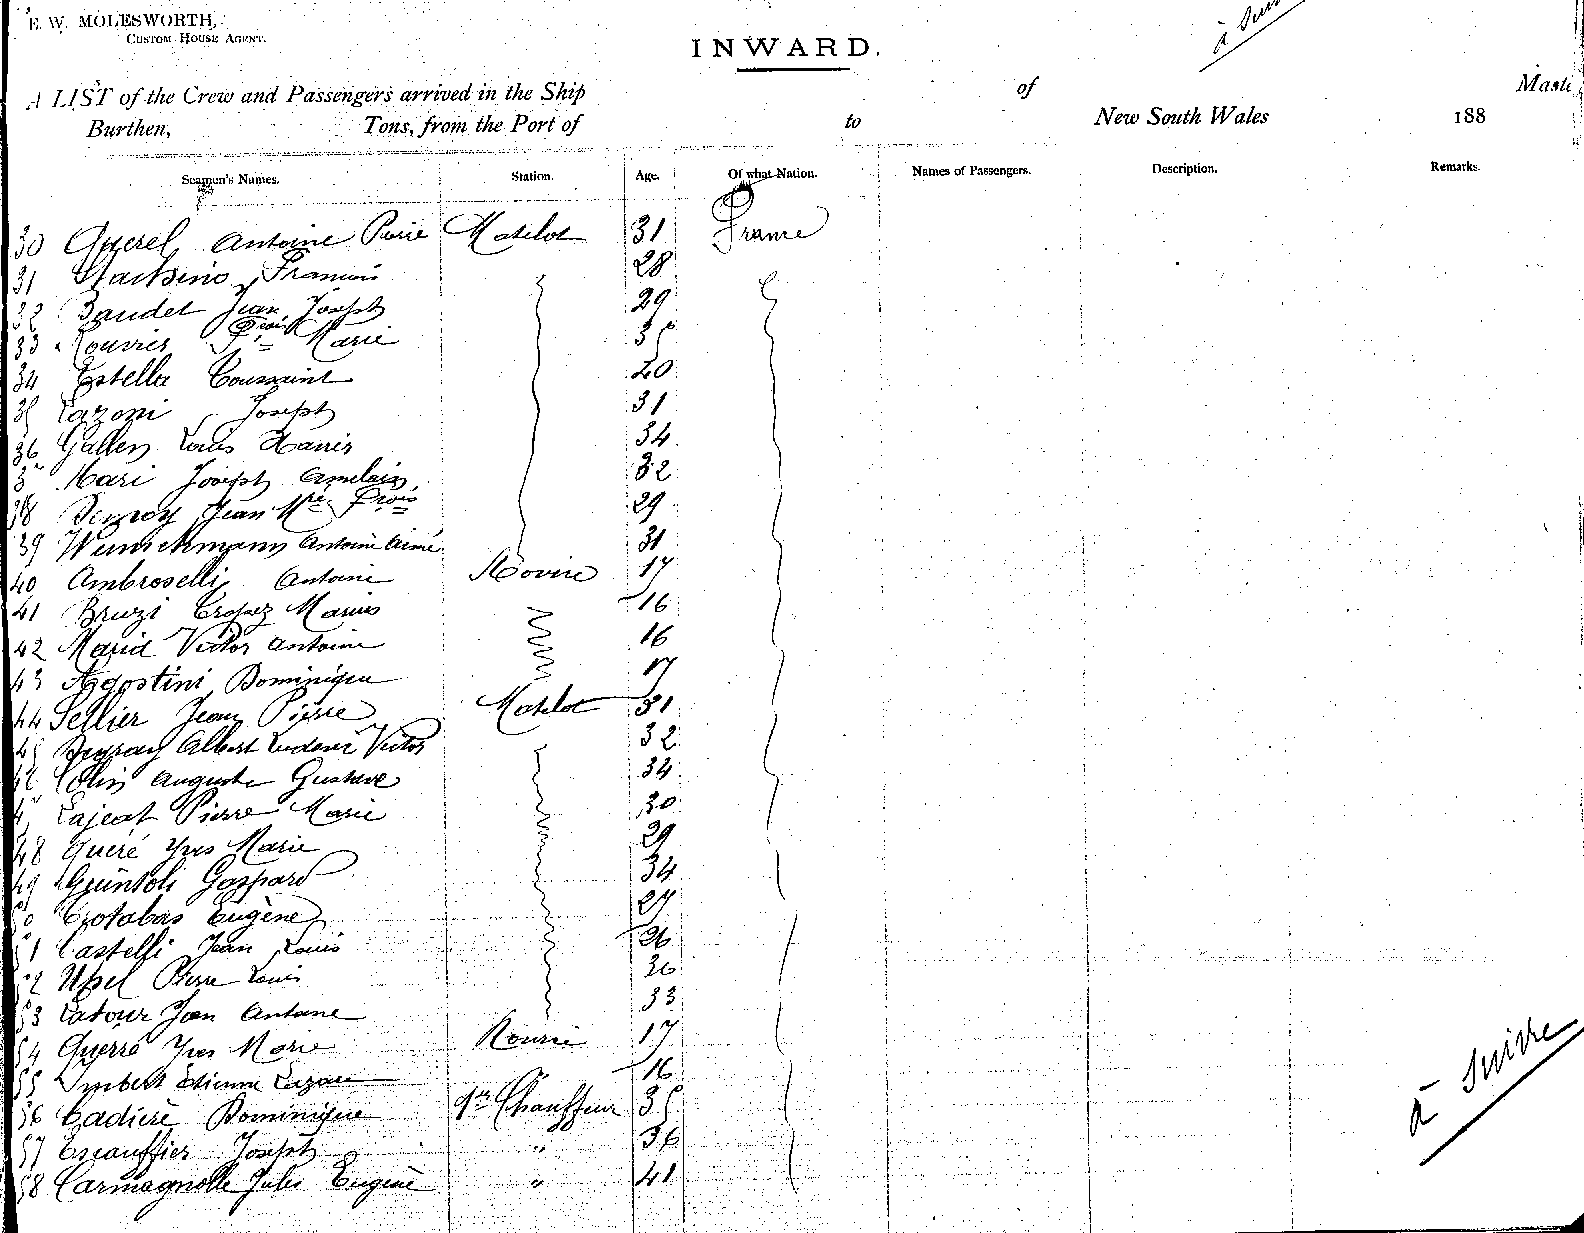 E. W. MOLESWORTH,
CUSTOM HOUSE AGENT.
à Suivre
INWARD.
A LIST of the Crew and Passengers arrived in the Ship of Maste
Burthen, Tons, from the Port of to New South Wales 188
Seamen's Names. Station. Age. Of what Nation. Names of Passengers. Description. Remarks.
30 Querel Antoine Pierre Matelot 31 France
31 François 28
32 Baudet Jean Joseph 29
33 Rouvier Jean Marie 35
34 Estella Toussaint 20
35 Lazoni Joseph 31
36 Gallen Louis Xavier 34
3 Mari Joseph 32
38 Jean Mie Frois 29
39 Antoine Aimé 31
40 Ambroselli Antoine Novice 17
41 Bruzi Tropez Marius 16
42 Marid Victor Antoine 16
43 Agostini Dominique 17
44 Sellier Jean Pierre Matelot 31
45 Albert Victor 32
46 Colin Auguste Gustave 34
4 Lajeat Pierre Marie 30
48 Queré Yves Marie 29
49 Guintoli Gaspard 34
50 Crotabas Eugène 27
51 Castelli Jean Louis 26
52 Upel Pierre Louis 36
53 Latour Jean Antoine 33
54 Querré Yves Marie Novice 17
55 Imbert Etienne Lazare 16
56 Cadière Dominique qr Chauffeur 35
57 Escauffier Joseph " 36
58 Carmagnolle Jules Eugène " 41
à Suivre